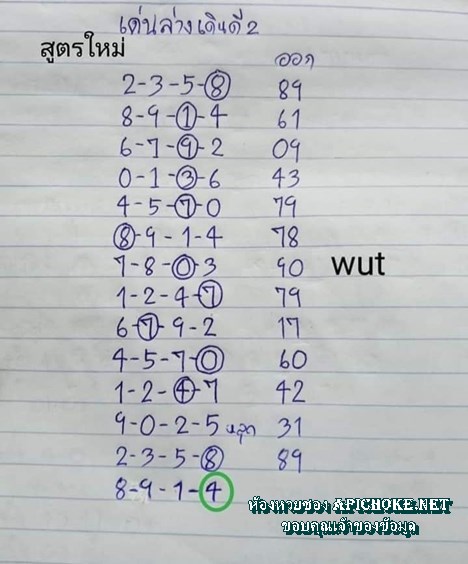 เด่นล่างเดินดี 2
สูตรใหม่
ออก
2-3-5-8 89
8-9-1-4 61
6-7-9-2 09
0-1-3-6 43
4-5-7-0 79
8-9-1-4 78
7-8-0-3 90 wut
1-2-4-7 79
6-7-9-2 17
4-5-7-0 60
1-2-4-7 42
9-0-2-5 หลุด 31
2-3-5-8 89
8-9-1-4
ห้องหายซอง APICHOKE.NET
ขอบคุณเจ้าของข้อมูล